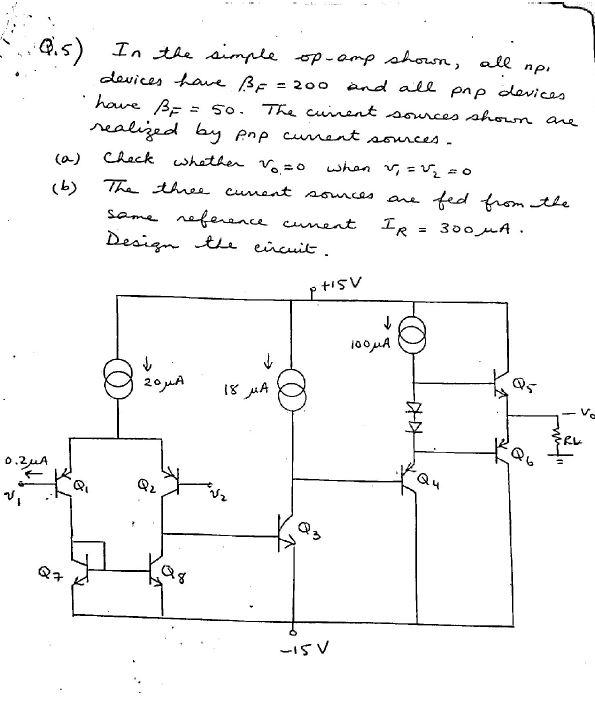 Q.5) In the simple op-amp shown, all npn
devices have βF = 200 and all pnp devices
have βF = 50. The current sources shown are
realized by pnp current sources.
(a) Check whether vo = 0 when v1 = v2 = 0
(b) The three current sources are fed from the
same reference current IR = 300 μA.
Design the circuit.
+15V
100 μA
20 μA
18 μA
Q5
Vo
RL
0.2μA
Q6
v1
Q1
Q2
v2
Q4
Q3
Q7
Q8
-15 V